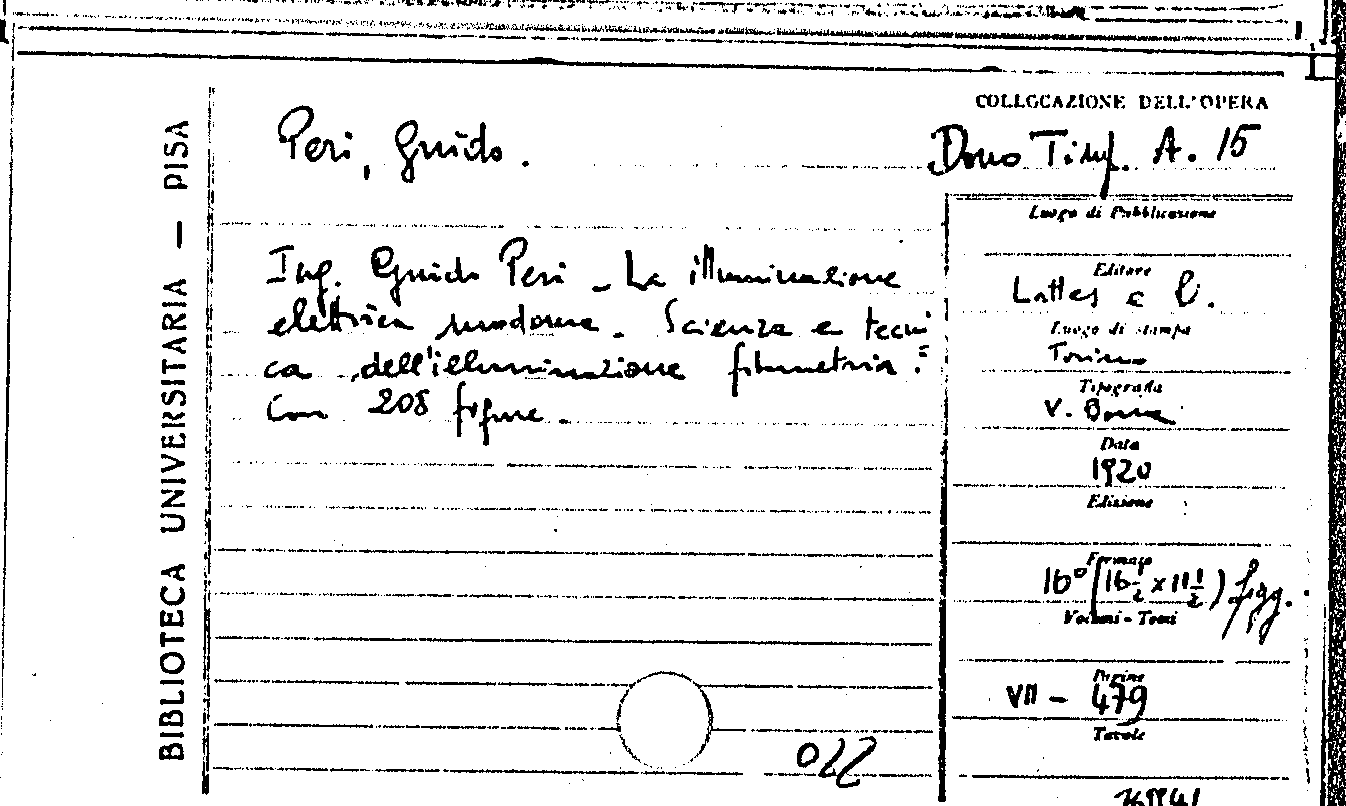 BIBLIOTECA UNIVERSITARIA — PISA
Peri, Guido.
Ing. Guido Peri - La illuminazione
elettrica moderna. Scienza e tecni=
ca dell'illuminazione fotometria.
Con 208 figure.
022
COLLOCAZIONE DELL'OPERA
Dono Timp. A. 15
Luogo di Pubblicazione
Editore
Lattes e C.
Luogo di stampa
Torino
Tipografia
V. Bona
Data
1920
Edizione
Formato
16° (16 1/2 x 11 1/2) figg.
Volumi - Tomi
Pagine
VII - 479
Tavole